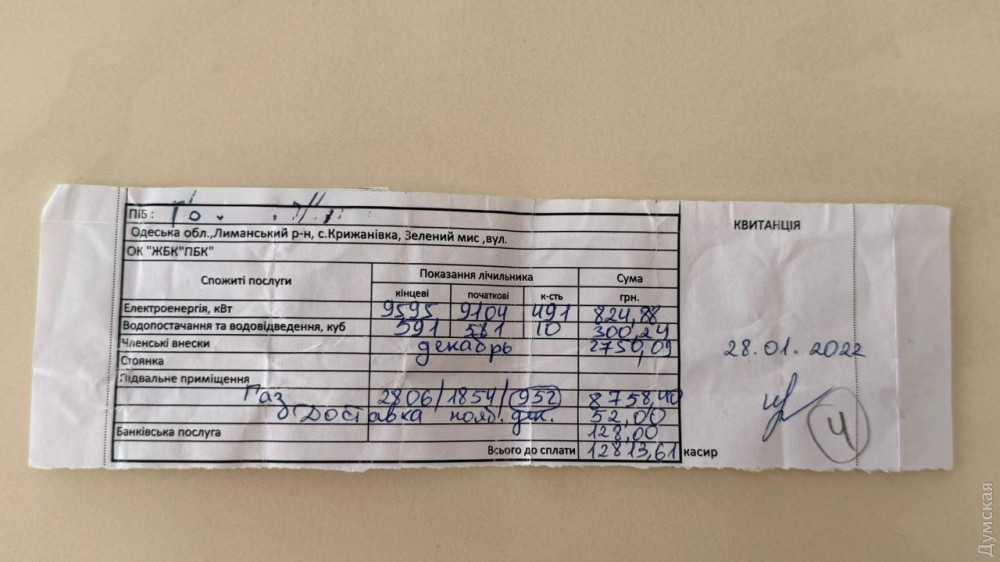 ПІБ :
Одеська обл.,Лиманський р-н, с.Крижанівка, Зелений мис ,вул.
ОК "ЖБК"ПБК"
КВИТАНЦІЯ
Спожиті послуги Показання лічильника Сума
кінцеві початкові к-сть грн.
Електроенергія, кВт 9595 9104 491 824,88
Водопостачання та водовідведення, куб 591 581 10 300,24
Членські внески декабрь 2750,09
Стоянка
Підвальне приміщення
Газ 2806/1854/952 8758,40
Доставка нояб. дек. 52,00
Банківська послуга 128,00
Всього до сплати 12813,61 касир
28.01.2022
4
Думская